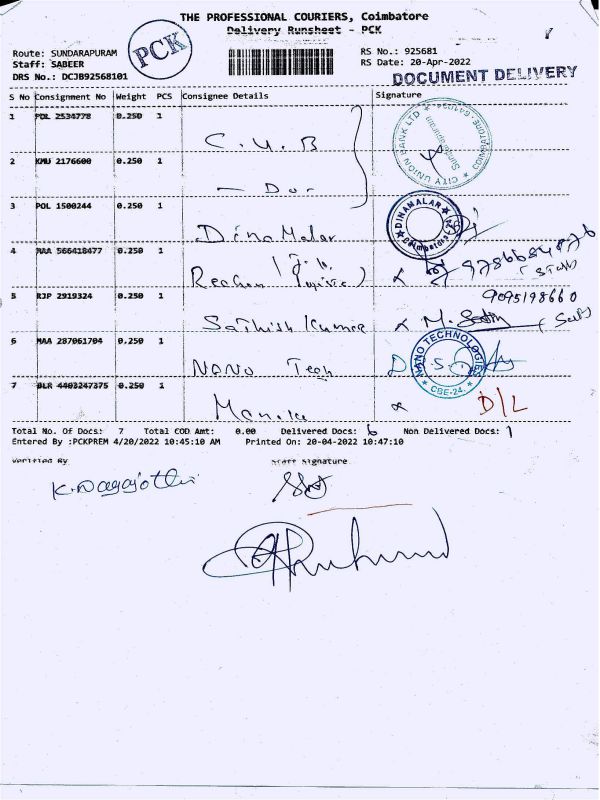 THE PROFESSIONAL COURIERS, Coimbatore
Delivery Runsheet - PCK
PCK
Route: SUNDARAPURAM
Staff: SABEER
DRS No.: DCJB92568101
RS No.: 925681
RS Date: 20-Apr-2022
DOCUMENT DELIVERY
S No Consignment No Weight PCS Consignee Details Signature
1 PDL 2534778 0.250 1 C.U.B
CITY UNION BANK LTD COIMBATORE-641024
Sundarapuram
2 KMU 2176600 0.250 1
3 POL 1500244 0.250 1 Dina Malar
DINAMALAR
Coimbatore
4 MAA 566418477 0.250 1
9786684876
5 RJP 2919324 0.250 1 Sathish Kumar
9095198660
(Self)
6 MAA 287061704 0.250 1 NANO Tech
NANO TECHNOLOGIES
CBE-24.
7 BLR 4403247375 0.250 1
D/L
Total No. Of Docs: 7 Total COD Amt: 0.00 Delivered Docs: 6 Non Delivered Docs: 1
Entered By :PCKPREM 4/20/2022 10:45:10 AM Printed On: 20-04-2022 10:47:10
Verified By Staff Signature